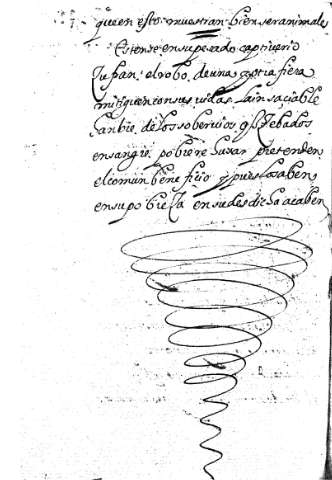 que en esto muestran bien ser animales
Estense en su pesado captiverio
sufran el robo de una harpia fiera
mitiguen con sus vidas la insaciable
hambre de los sobervios q̃ sebados
en sangre pobre reçusar pretenden
el comun beneficio y pues lo saben
en su pobreza en su desdicha acaben